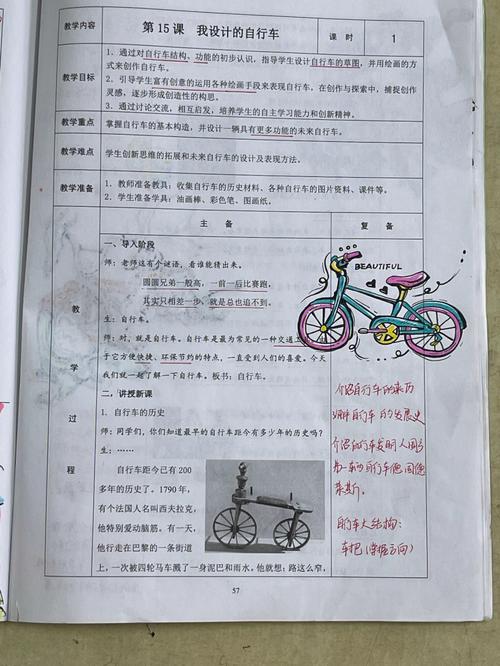 教学内容 第 15 课 我设计的自行车 课 时 1
教学目标
1．通过对自行车结构、功能的初步认识，指导学生设计自行车的草图，并用绘画的方
式来创作自行车。
2．引导学生富有创意的运用各种绘画手段来表现自行车，在创作与探索中，捕捉创作
灵感，逐步形成创造性的构思。
3．通过讨论交流，相互启发，培养学生的自主学习能力和创新精神。
教学重点 掌握自行车的基本构造，并设计一辆具有更多功能的未来自行车。
教学难点 学生创新思维的拓展和未来自行车的设计及表现方法。
教学准备
1．教师准备教具：收集自行车的历史材料、各种自行车的图片资料、课件等。
2．学生准备学具：油画棒、彩色笔、图画纸。
教学过程
主 备
一、导入阶段
师：老师这有个谜语，看谁能猜出来。
圆圆兄弟一般高，一前一后比赛跑，
其实只相差一步，就是总也追不到。
生：自行车。
师：对，就是自行车。自行车是最为常见的一种交通工
于它方便快捷、环保节约的特点，一直受到人们的喜爱。今天
我们就一起了解一下自行车。板书：自行车。
二、讲授新课
1．自行车的历史
师：同学们，你们知道最早的自行车距今有多少年的历史吗？
生：……
自行车距今已有 200
多年的历史了。1790 年，
有个法国人名叫西夫拉克，
他特别爱动脑筋。有一天，
他行走在巴黎的一条街道
上，一次被四轮马车溅了一身泥巴和雨水。他就想：路这么窄，
复 备
BEAUTIFUL
介绍自行车的来历
自行车的发展史
介绍自行车发明人
德国德
莱斯。
自行车大结构：
车把（掌握方向）
57